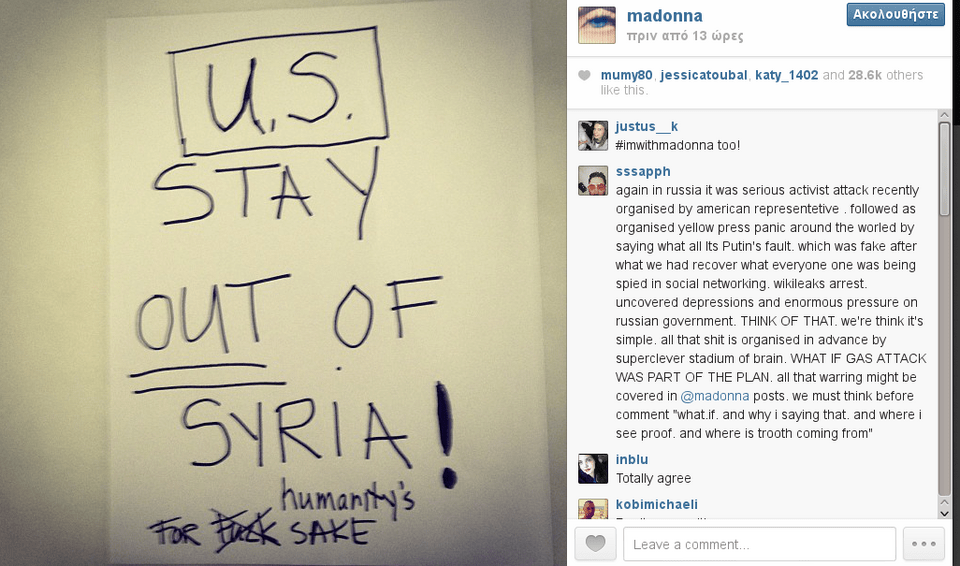 U.S.
STAY
OUT OF
SYRIA!
humanity's
FOR Fuck SAKE
madonna
πριν από 13 ώρες
Ακολουθήστε
mumy80, jessicatoubal, katy_1402 and 28.6k others
like this.
justus__k
#imwithmadonna too!
sssapph
again in russia it was serious activist attack recently
organised by american representetive . followed as
organised yellow press panic around the worled by
saying what all Its Putin's fault. which was fake after
what we had recover what everyone one was being
spied in social networking. wikileaks arrest.
uncovered depressions and enormous pressure on
russian government. THINK OF THAT. we're think it's
simple. all that shit is organised in advance by
superclever stadium of brain. WHAT IF GAS ATTACK
WAS PART OF THE PLAN. all that warring might be
covered in @madonna posts. we must think before
comment "what.if. and why i saying that. and where i
see proof. and where is trooth coming from"
inblu
Totally agree
kobimichaeli
Leave a comment...